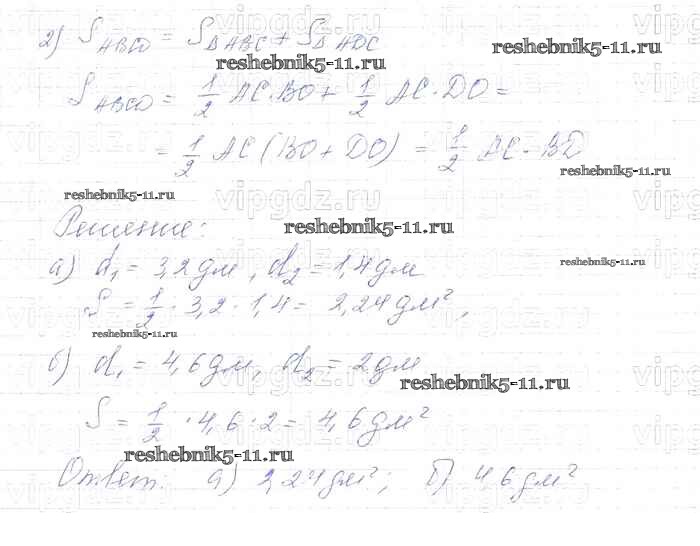 2) S ABCD = S Δ ABC + S Δ ADC
reshebnik5-11.ru
reshebnik5-11.ru
S ABCD = 1/2 AC · BO + 1/2 AC · DO =
= 1/2 AC (BO + DO) = 1/2 AC · BD
reshebnik5-11.ru
reshebnik5-11.ru
vipgdz.ru
Решение:
reshebnik5-11.ru
а) d₁ = 3,2 дм, d₂ = 1,4 дм
reshebnik5-11.ru
S = 1/2 · 3,2 · 1,4 = 2,24 дм²,
reshebnik5-11.ru
б) d₁ = 4,6 дм, d₂ = 2 дм
reshebnik5-11.ru
S = 1/2 · 4,6 · 2 = 4,6 дм²
reshebnik5-11.ru
Ответ: а) 2,24 дм²; б) 4,6 дм²